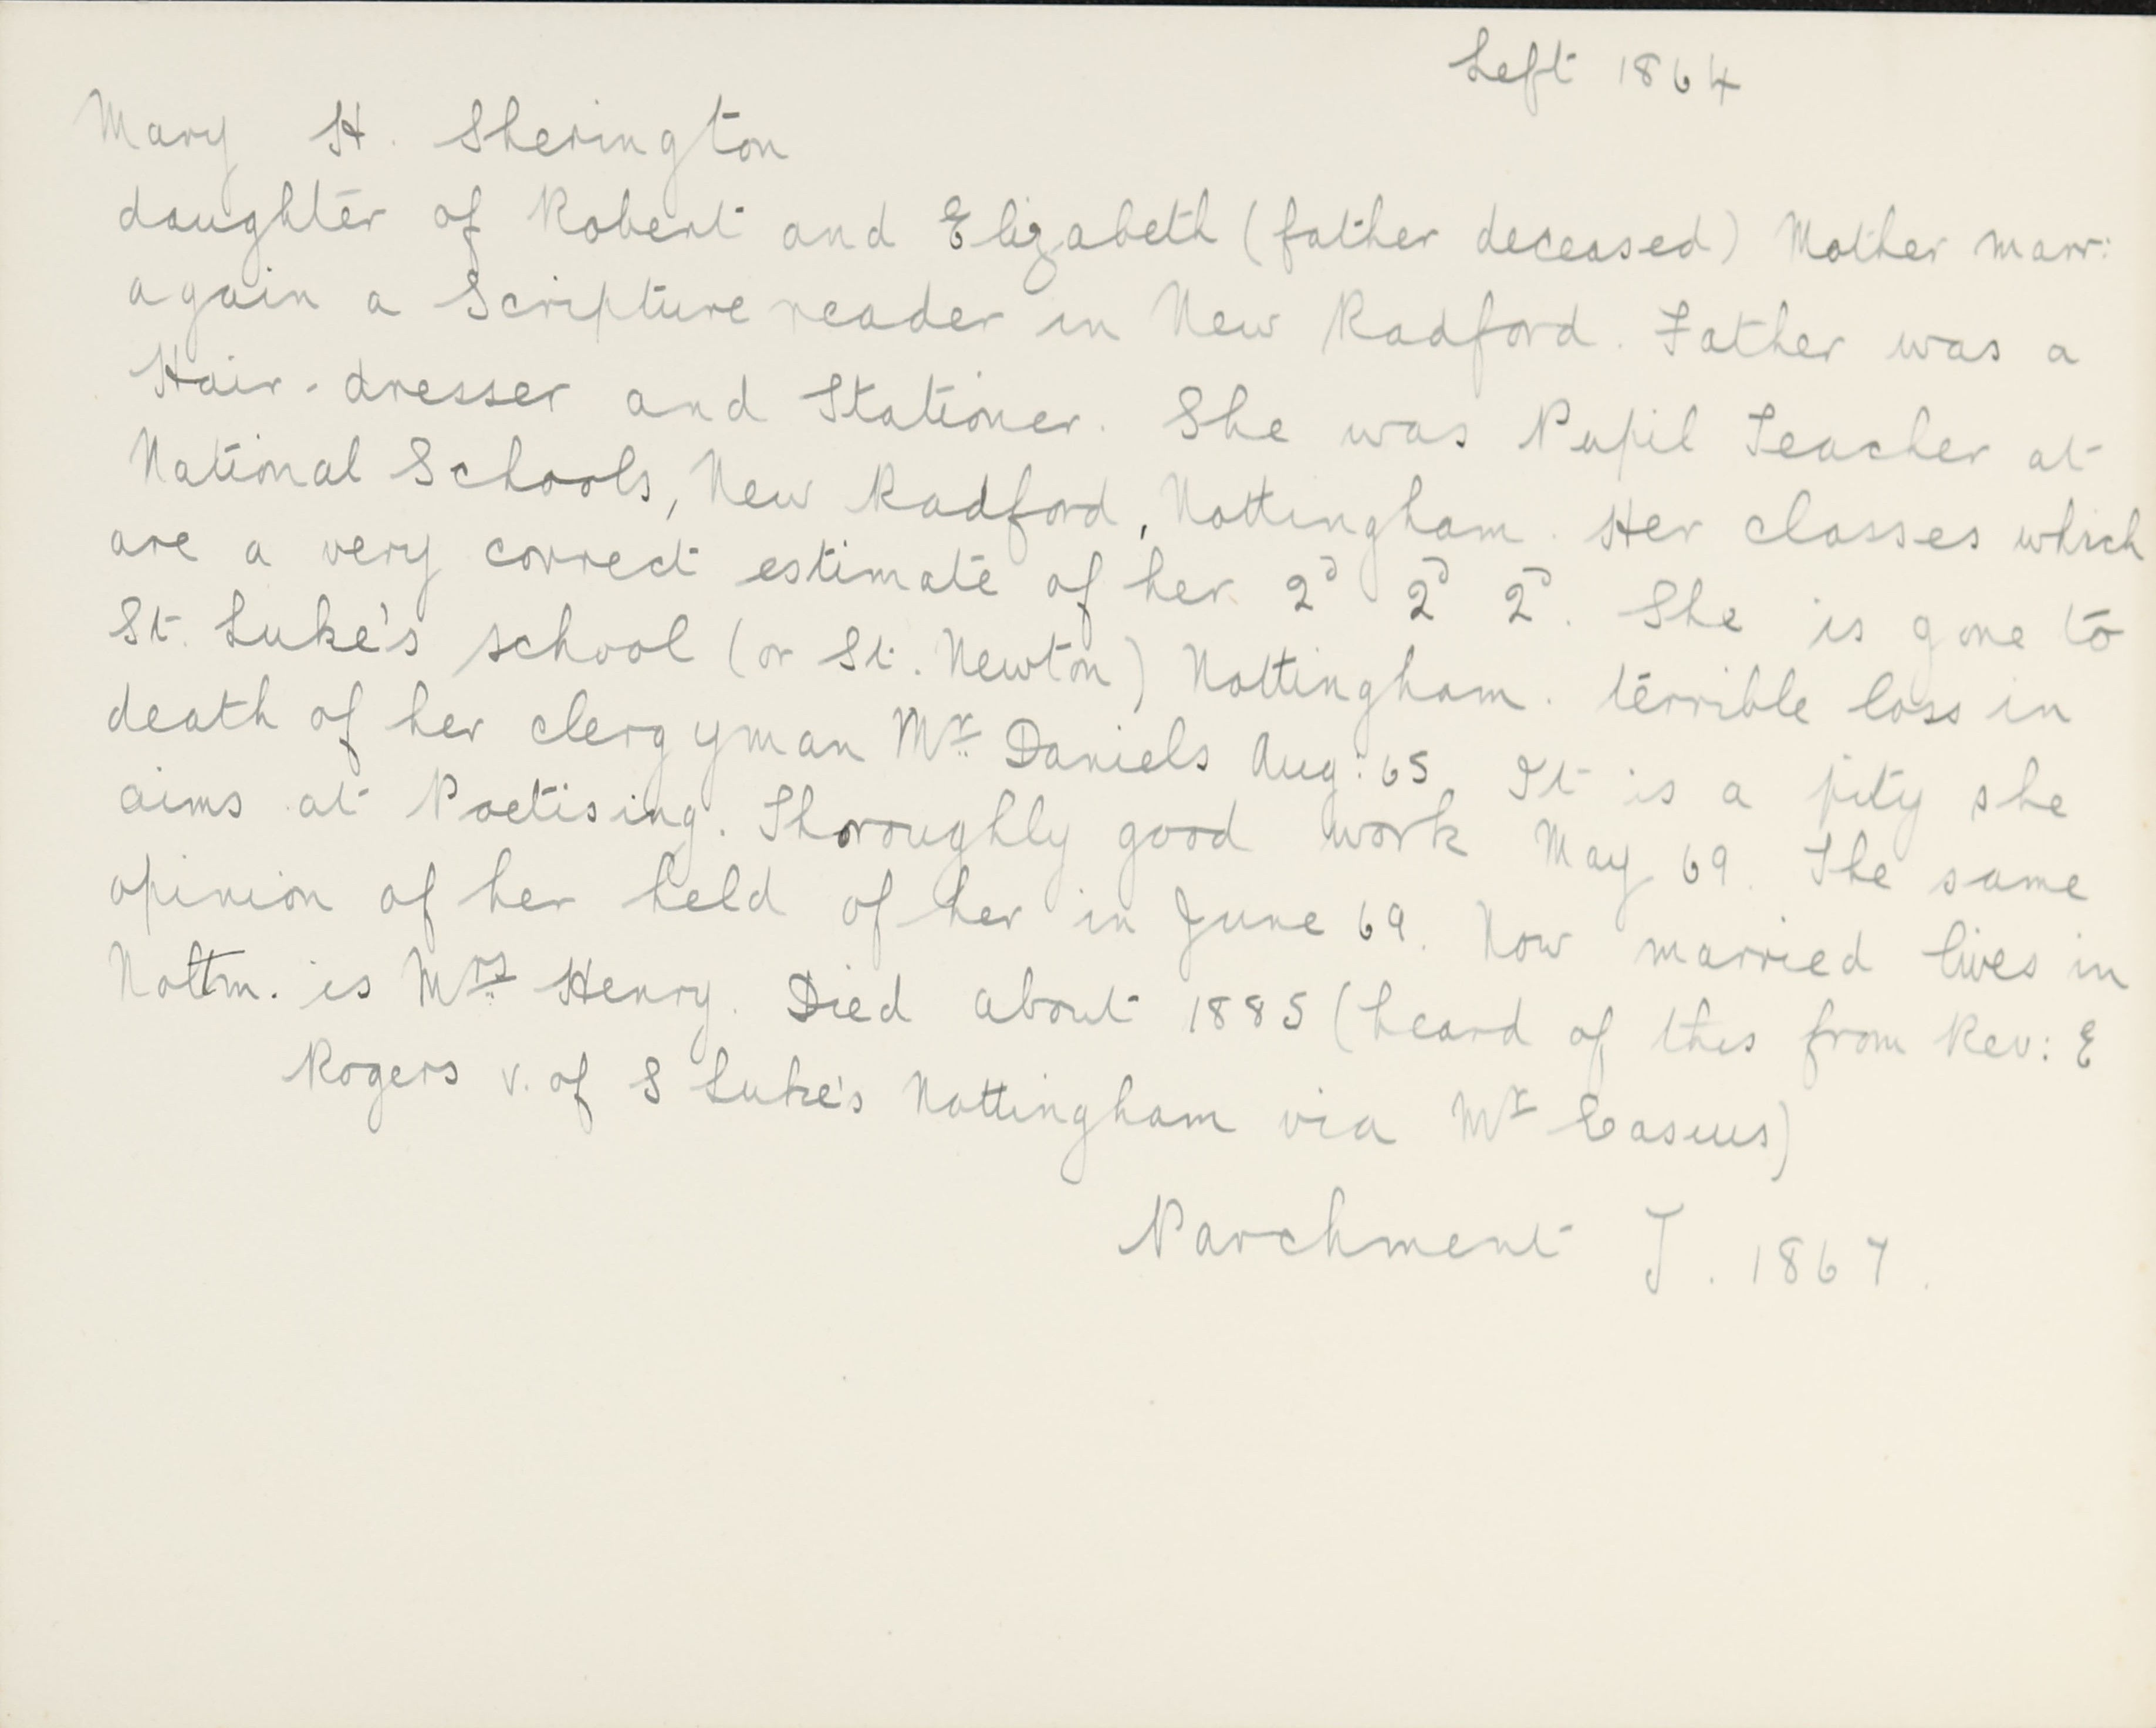 Left 1864
Mary H. Sherington
daughter of Robert and Elizabeth (father deceased) Mother marr:
again a Scripture reader in New Radford. Father was a
Hair-dresser and Stationer. She was Pupil Teacher at
National Schools, New Radford, Nottingham. Her classes which
are a very correct estimate of her 2ᴰ 2ᴰ 2ᴰ. She is gone to
St. Luke's school (or St. Newton) Nottingham. terrible loss in
death of her clergyman Mr Daniels Aug: 65. It is a pity she
aims at Poetising. Thoroughly good work May 69. The same
opinion of her held of her in June 69. Now married lives in
Nottm. is Mrs Henry. Died about 1885 (heard of this from Rev: E
Rogers v. of S Luke's Nottingham via Mr)
Parchment J. 1867.